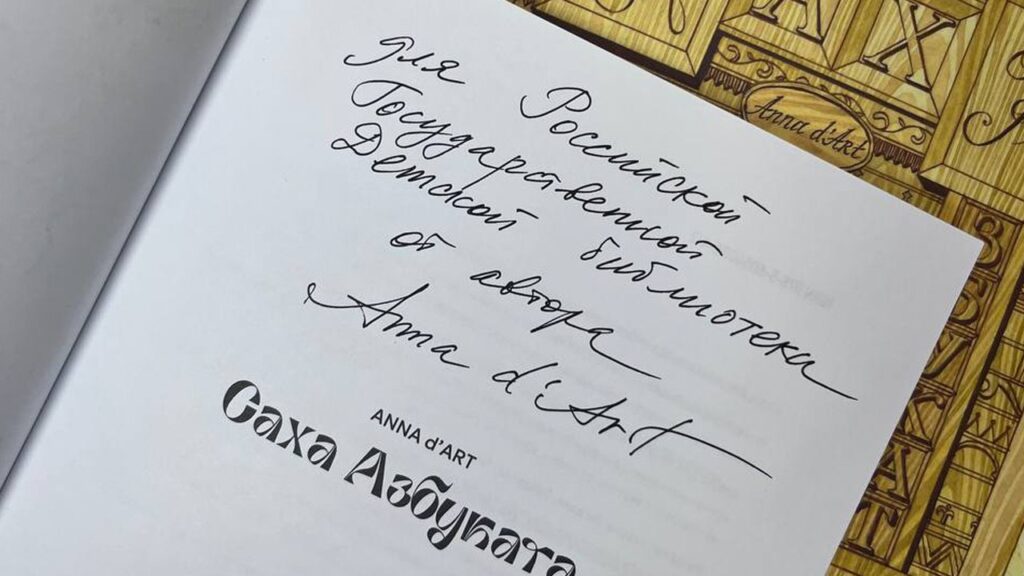 для Российской
Государственной
Детской библиотека
от автора
Anna d'Art
ANNA d'ART
Саха Азбуката
Anna d'Art